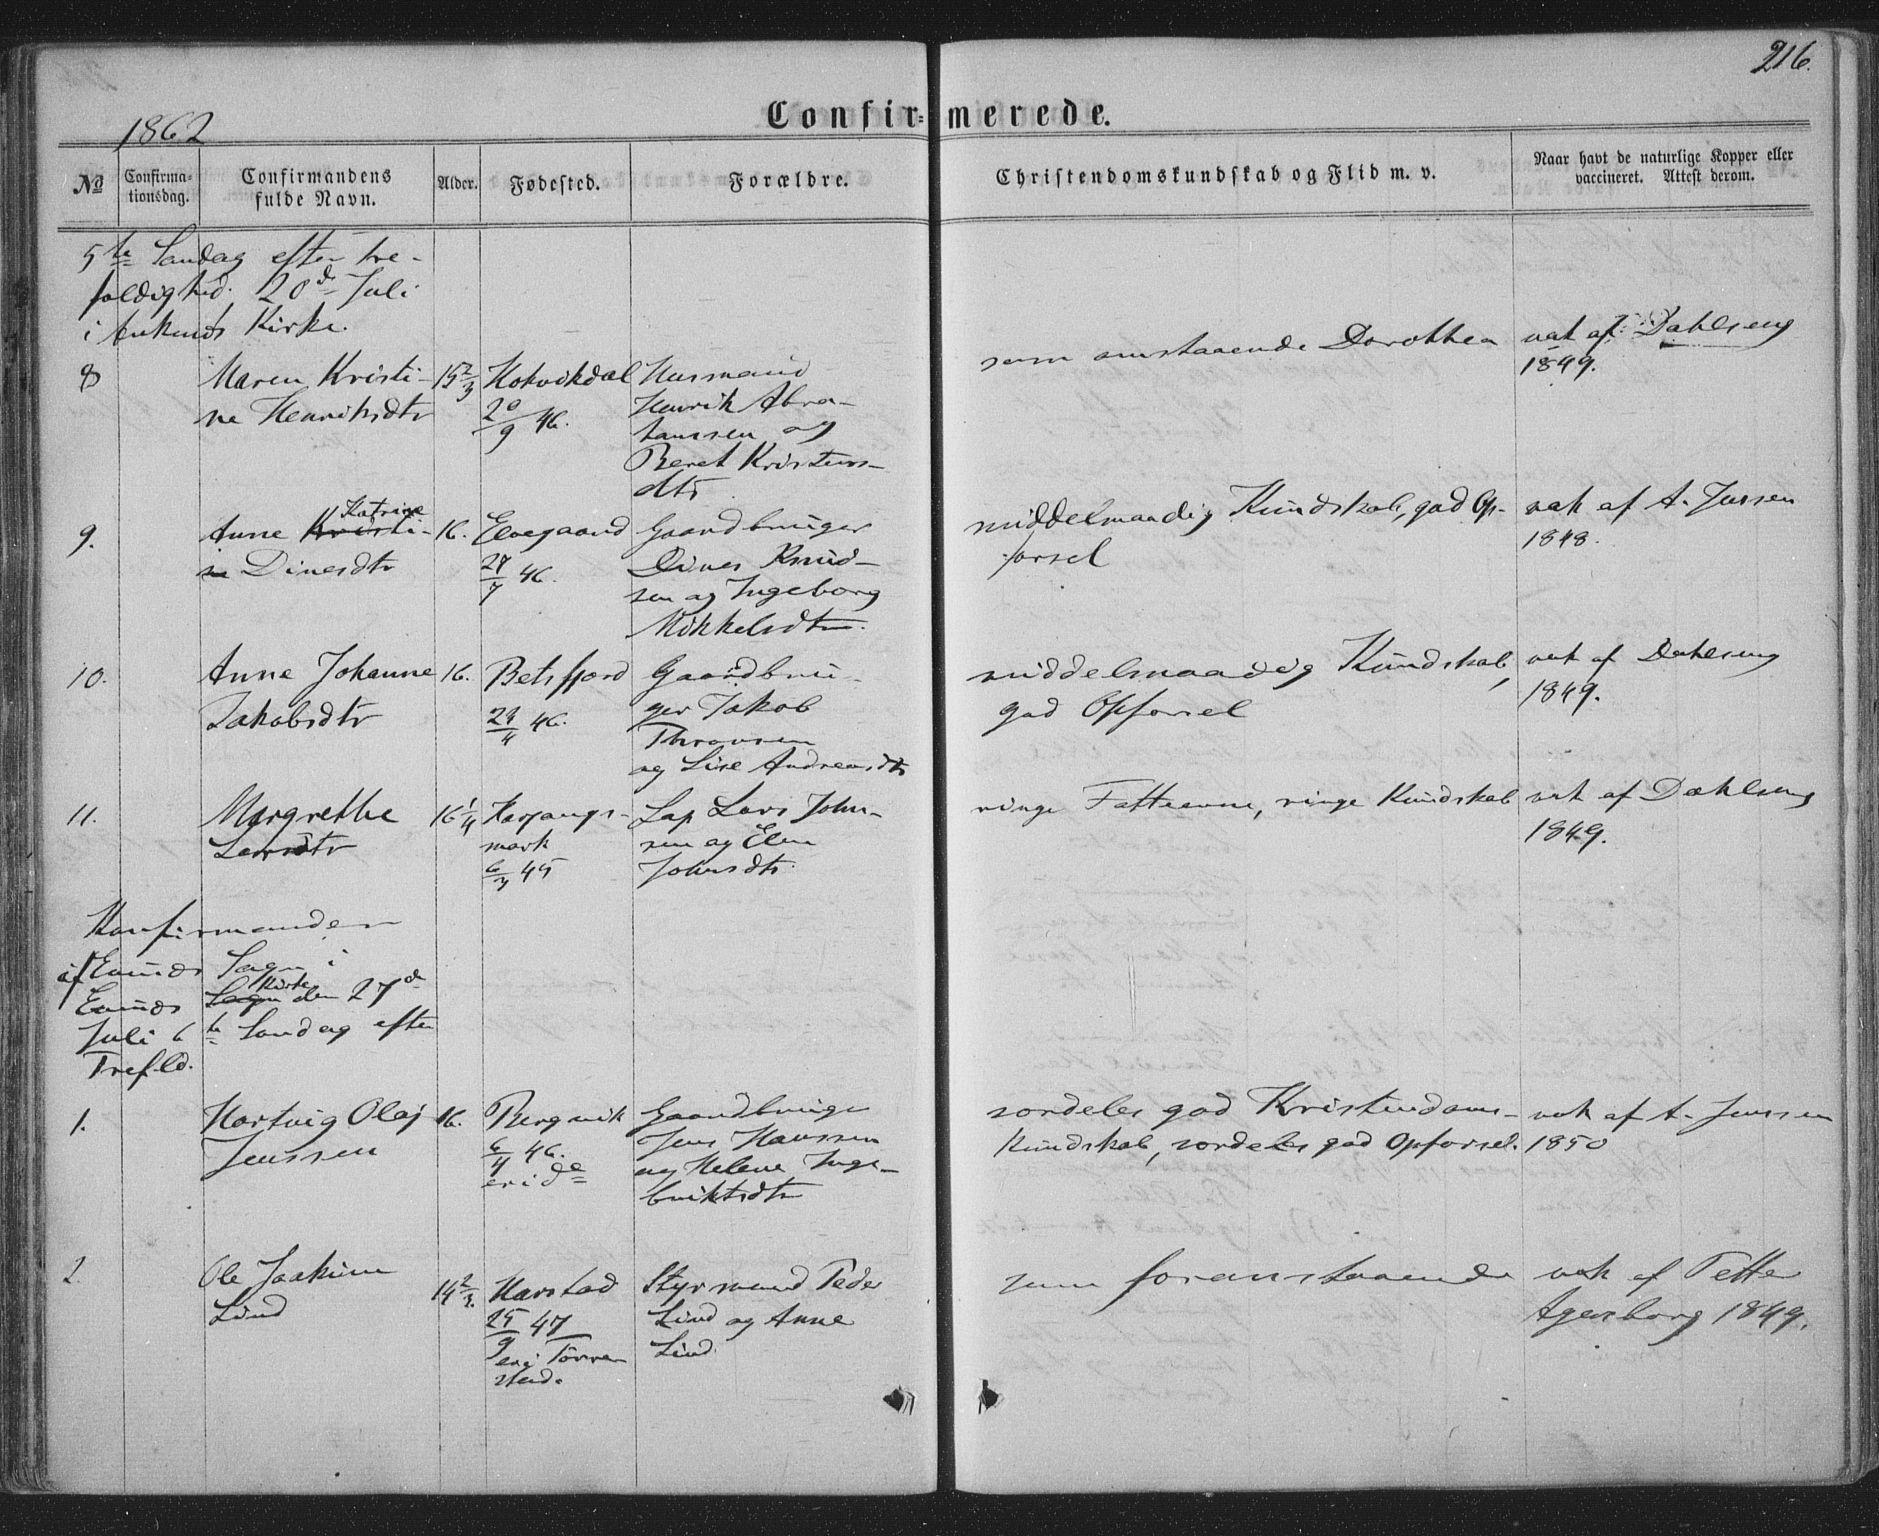 216.
1862
Confir= merede.
No
Confirma-
tionsdag.
Confirmandens
fulde Navn.
Alder.
Fødested.
Forældre.
Christendomskundskab og Flid m. v.
Naar havt de naturlige Kopper eller
vaccineret. Attest derom.
5te Søndag efter tre-
foldighed. 20de Juli
i Ankenæs Kirke.
8
Maren Kristi-
ne Henriksdtr
15 2/3
20/9 46.
Husmand
Henrik Abra-
hamsen og
Beret Kristens-
dtr
som omstaaende Dorothea
vak af Dahlseng
1849.
9.
Anne Kristi-
Katrine
ne Dinesdtr
16.
Elvegaard
27/7 46.
Gaardbruger
Dines Knud-
sen og Ingeborg
Mikkelsdtr.
middelmaadig Kundskab, god Op-
førsel
vak af A. Jenssen
1848.
10.
Anne Johanne
Jakobsdtr
16.
Beisfjord
29/4 46.
Gaardbru-
ger Jakob
og Lise Andreasdtr
middelmaadig Kundskab,
god Opførsel
vak af Dahlseng
1849.
11.
Margrethe
Larsdtr
16 1/4
mark
6/3 45
Lap Lars John-
sen og Elen
Johnsdtr.
ringe Fatteevne, ringe Kundskab
vak af Dahlseng
1849.
Konfirmander
af Evenæs Sogn i
Evenæs Sogn Kirke den 27de
Juli 6te Søndag efter
Trefld.
1.
Hartvig Olaj
Jenssen
16.
Bergvik
6/4 46.
Gaardbruger
Jens Hanssen
og Helene Inge-
briktsdtr
særdeles god Kristendoms-
kundskab, særdeles god Opførsel.
vak af A. Jenssen
1850
2.
Ole Joakim
Lind
14 2/3.
Harstad
25/9 47
Styrmand Peder
Lind og Anne
Lind.
som foranstaaende
vak af Pette
Agersborg 1849.